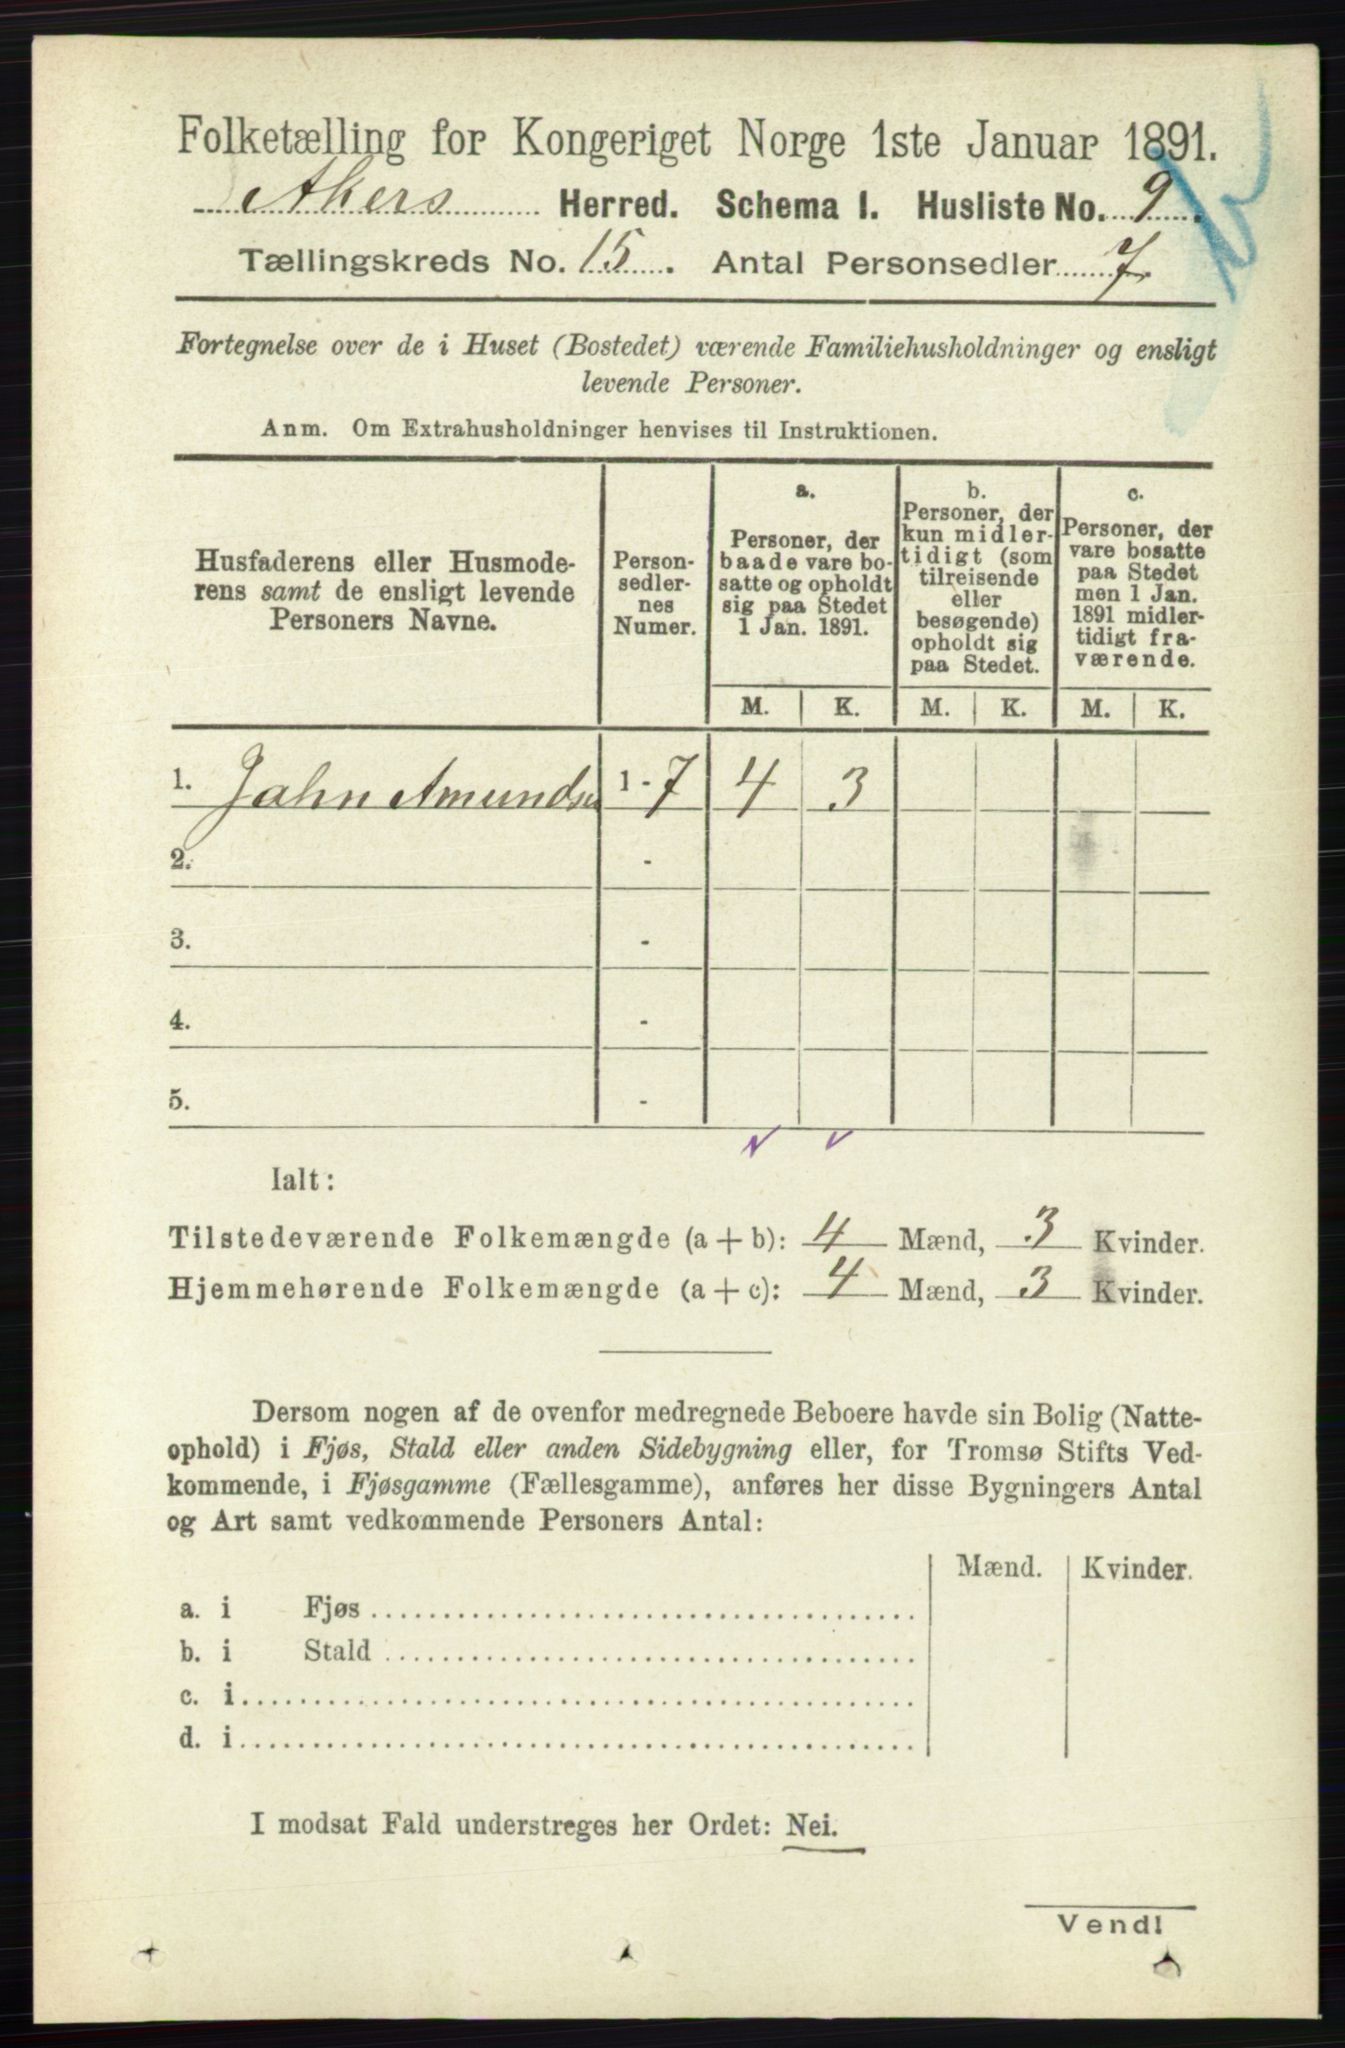 Folketælling for Kongeriget Norge 1ste Januar 1891.
Akers Herred. Schema I. Husliste No. 9.
Tællingskreds No. 15. Antal Personsedler 7.
Fortegnelse over de i Huset (Bostedet) værende Familiehusholdninger og ensligt
levende Personer.
Anm. Om Extrahusholdninger henvises til Instruktionen.
Husfaderens eller Husmode-
rens samt de ensligt levende
Personers Navne.
Person-
sedler-
nes
Numer.
a.
Personer, der
baade vare bo-
satte og opholdt
sig paa Stedet
1 Jan. 1891.
b.
Personer, der
kun midler-
tidigt (som
tilreisende
eller
besøgende)
opholdt sig
paa Stedet.
c.
Personer, der
vare bosatte
paa Stedet
men 1 Jan.
1891 midler-
tidigt fra-
værende.
M. K. M. K. M. K.
1. Jahn Amundsen 1 - 7 4 3
2. -
3. -
4. -
5. -
Ialt:
Tilstedeværende Folkemængde (a + b): 4 Mænd, 3 Kvinder.
Hjemmehørende Folkemængde (a + c): 4 Mænd, 3 Kvinder.
Dersom nogen af de ovenfor medregnede Beboere havde sin Bolig (Natte-
ophold) i Fjøs, Stald eller anden Sidebygning eller, for Tromsø Stifts Ved-
kommende, i Fjøsgamme (Fællesgamme), anføres her disse Bygningers Antal
og Art samt vedkommende Personers Antal:
Mænd. Kvinder.
a. i Fjøs
b. i Stald
c. i
d. i
I modsat Fald understreges her Ordet: Nei.
Vend!